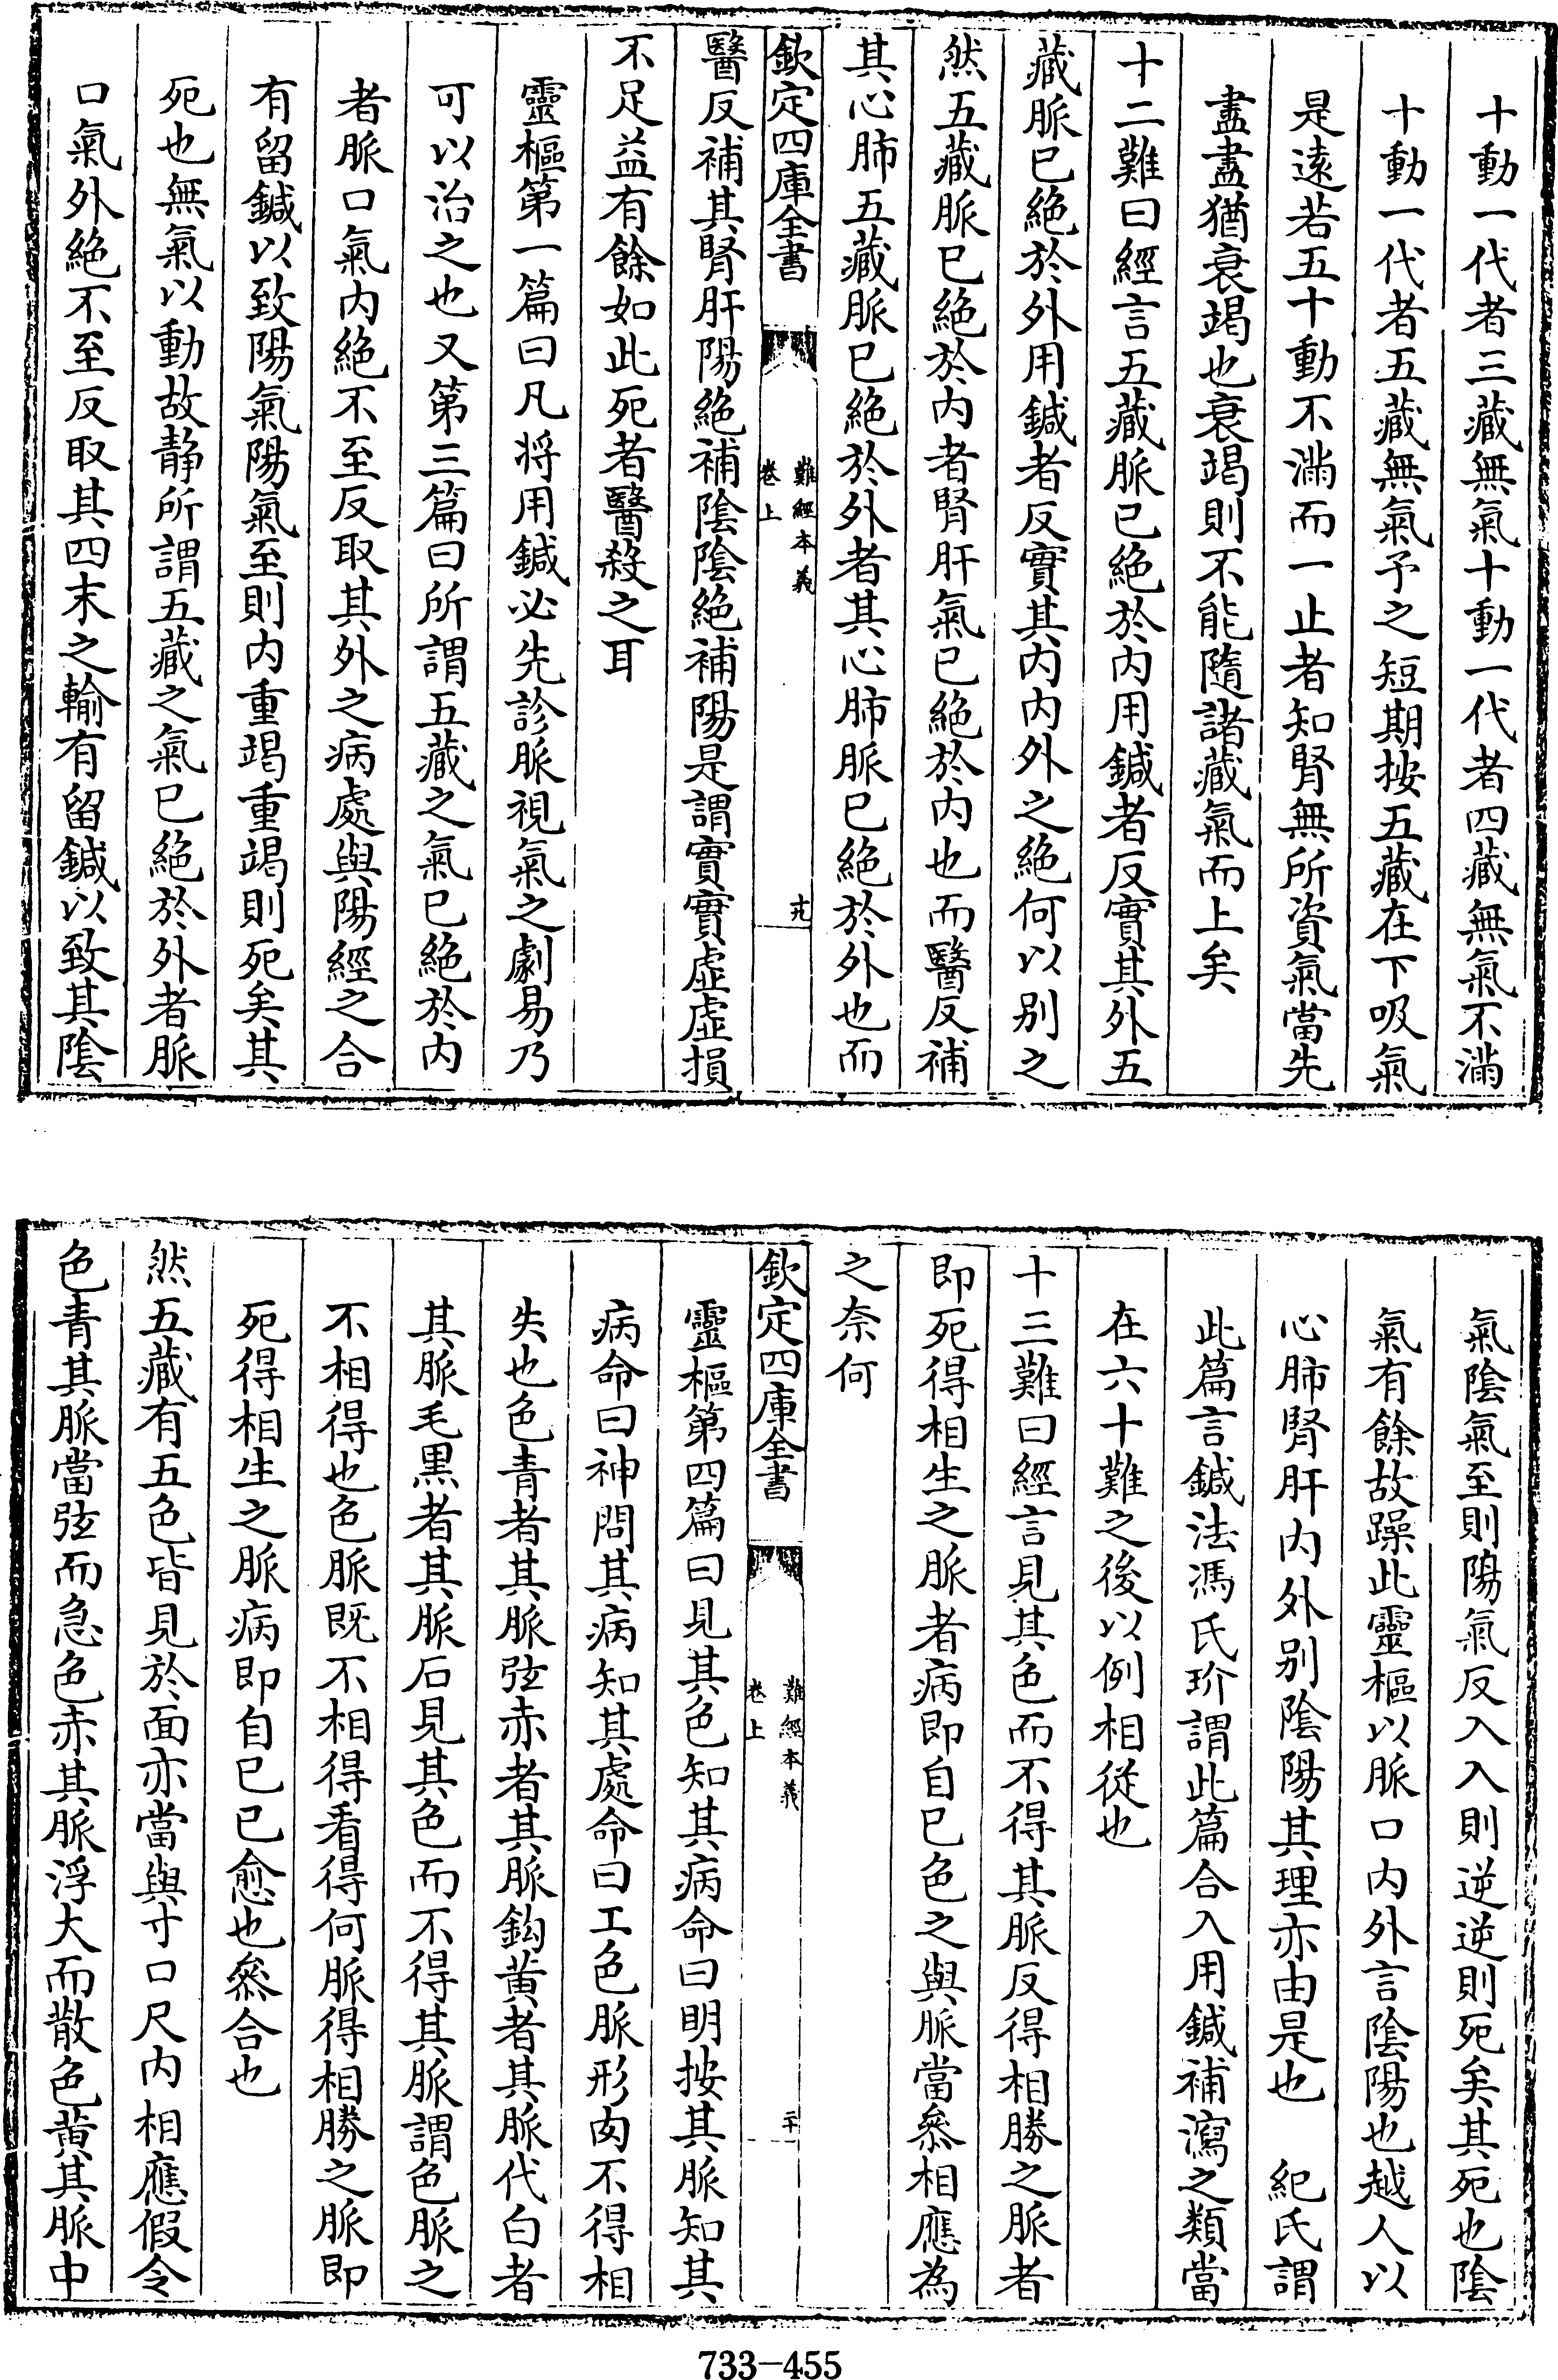 十動一代者三藏無氣十動一代者四藏無氣不滿
十動一代者五藏無氣予之短期按五藏在下吸氣
是逺若五十動不滿而一止者知腎無所資氣當先
盡盡猶衰竭也衰竭則不能隨諸藏氣而上矣
十二難曰經言五藏脈已絶於內用鍼者反實其外五
藏脈已絶於外用鍼者反實其內內外之絶何以别之
然五藏脈已絶於內者腎肝氣已絶於內也而醫反補
其心肺五藏脈已絶於外者其心肺脈已絶於外也而
欽定四庫全書
難經本義
卷上
十九
醫反補其腎肝陽絶補陰陰絶補陽是謂實實虛虛損
不足益有餘如此死者醫殺之耳
靈樞第一篇曰凡将用鍼必先診脈視氣之劇易乃
可以治之也又第三篇曰所謂五藏之氣已絶於內
者脈口氣內絶不至反取其外之病處與陽經之合
有留鍼以致陽氣陽氣至則內重竭重竭則死矣其
死也無氣以動故静所謂五藏之氣已絶於外者脈
口氣外絶不至反取其四末之輸有留鍼以致其陰
氣陰氣至則陽氣反入入則逆逆則死矣其死也陰
氣有餘故躁此靈樞以脈口內外言陰陽也越人以
心肺腎肝內外别陰陽其理亦由是也　紀氏謂
此篇言鍼法馮氏玠謂此篇合入用鍼補瀉之類當
在六十難之後以例相從也
十三難曰經言見其色而不得其脈反得相勝之脈者
即死得相生之脈者病即自已色之與脈當叅相應為
之奈何
欽定四庫全書
難經本義
卷上
二十
靈樞第四篇曰見其色知其病命曰明按其脈知其
病命曰神問其病知其處命曰工色脈形肉不得相
失也色青者其脈弦赤者其脈鈎黄者其脈代白者
其脈毛黒者其脈石見其色而不得其脈謂色脈之
不相得也色脈既不相得看得何脈得相勝之脈即
死得相生之脈病即自已已愈也叅合也
然五藏有五色皆見於面亦當與寸口尺內相應假令
色青其脈當弦而急色赤其脈浮大而散色黄其脈中
733-455